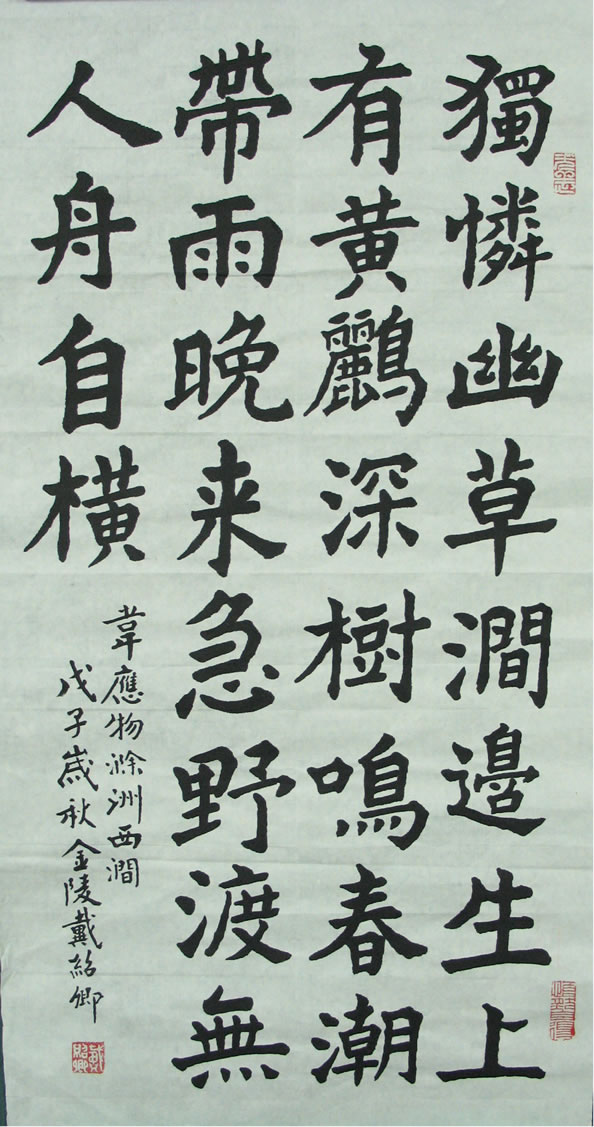 獨憐幽草澗邊生上
有黄鸝深樹鳴春潮
帶雨晚来急野渡無
人舟自橫
韋應物滁洲西澗
戊子歲秋金陵戴紹卿
戴紹卿